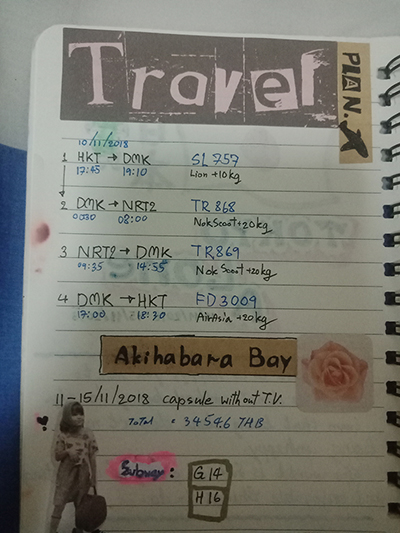 Travel
PLAN.
10/11/2018
1 HKT → DMK SL 757
17:45 19:10 Lion +10kg
2 DMK → NRT2 TR 868
0030 08:00 NokScoot +20kg
3 NRT2 → DMK TR869
09:35 14:55 Nok Scoot +20kg
4 DMK → HKT FD 3009
17:00 18:30 AirAsia +20kg
Akihabara Bay
11-15/11/2018 capsule without T.V.
ToTal : 34546 THB
Subway : G 14
H 16